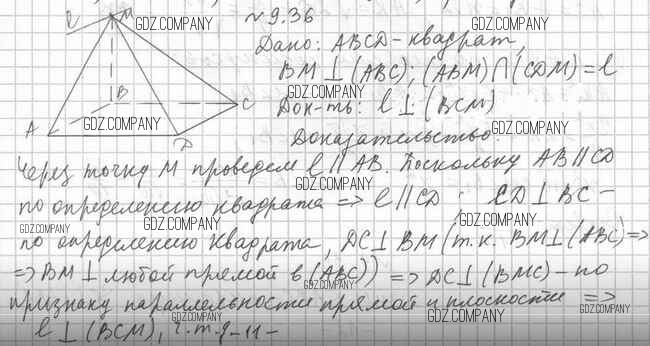 № 9.36
Дано: ABCD - квадрат,
BM ⊥ (ABC); (ABM) ∩ (CDM) = l
Док-ть: l ⊥ (BCM)
Доказательство:
l M
B C
A D
Через точку M проведем l || AB. Поскольку AB || CD
по определению квадрата => l || CD. CD ⊥ BC -
по определению квадрата, DC ⊥ BM (т.к. BM ⊥ (ABC) =>
=> BM ⊥ любой прямой в (ABC)) => DC ⊥ (BMC) - по
признаку параллельности прямой и плоскости =>
l ⊥ (BCM), ч.т.д.
GDZ.COMPANY
GDZ.COMPANY
GDZ.COMPANY
GDZ.COMPANY
GDZ.COMPANY
GDZ.COMPANY
GDZ.COMPANY
GDZ.COMPANY
GDZ.COMPANY
GDZ.COMPANY
GDZ.COMPANY
GDZ.COMPANY
GDZ.COMPANY